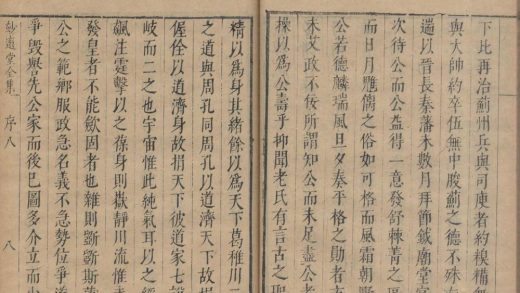 下比再治薊州兵與司庾者約糗糒無
與大帥約卒伍無中朘薊之德不殊在
遄以晉長秦藩未數月拜節鉞廟堂宣
次待公而公益得一意發舒棘菁之區
而日月雕傷之俗如可格而風霜朝野
公若德麟瑞風旦夕奏平格之勛者方
未艾政不佞所謂知公而未足盡公者
操以為公壽乎抑聞老氏有言古之聖
精以為身其緒餘以為天下葛稚川二
之道與周孔同周孔以道濟天下故揖
偓佺以道濟身故捐天下彼道家七證
岐而二之也宇宙惟此純氣耳以之
飆注霆擊以之葆身則嶽靜川流惟
發皇者不能歛固者也雜則斷斷斯
公之範鄉服政急名義不急勢位爭
爭毀譽先公家而後已圖多介立而少
鈔遺堂全集 序八 八